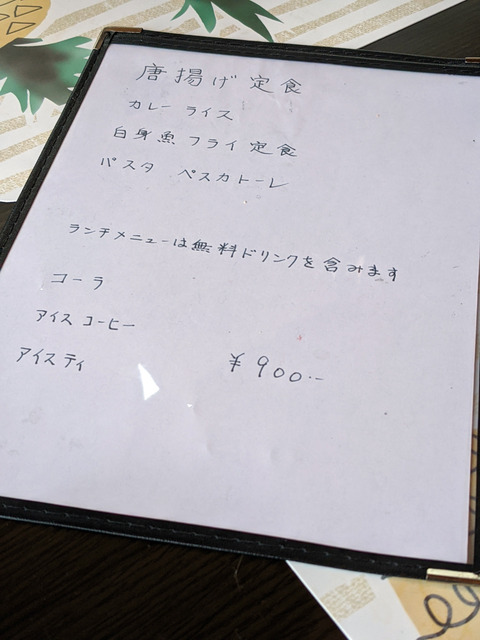 唐揚げ定食
カレーライス
白身魚フライ定食
パスタ ペスカトーレ
ランチメニューは無料ドリンクを含みます
コーラ
アイスコーヒー
アイスティ ¥900.-